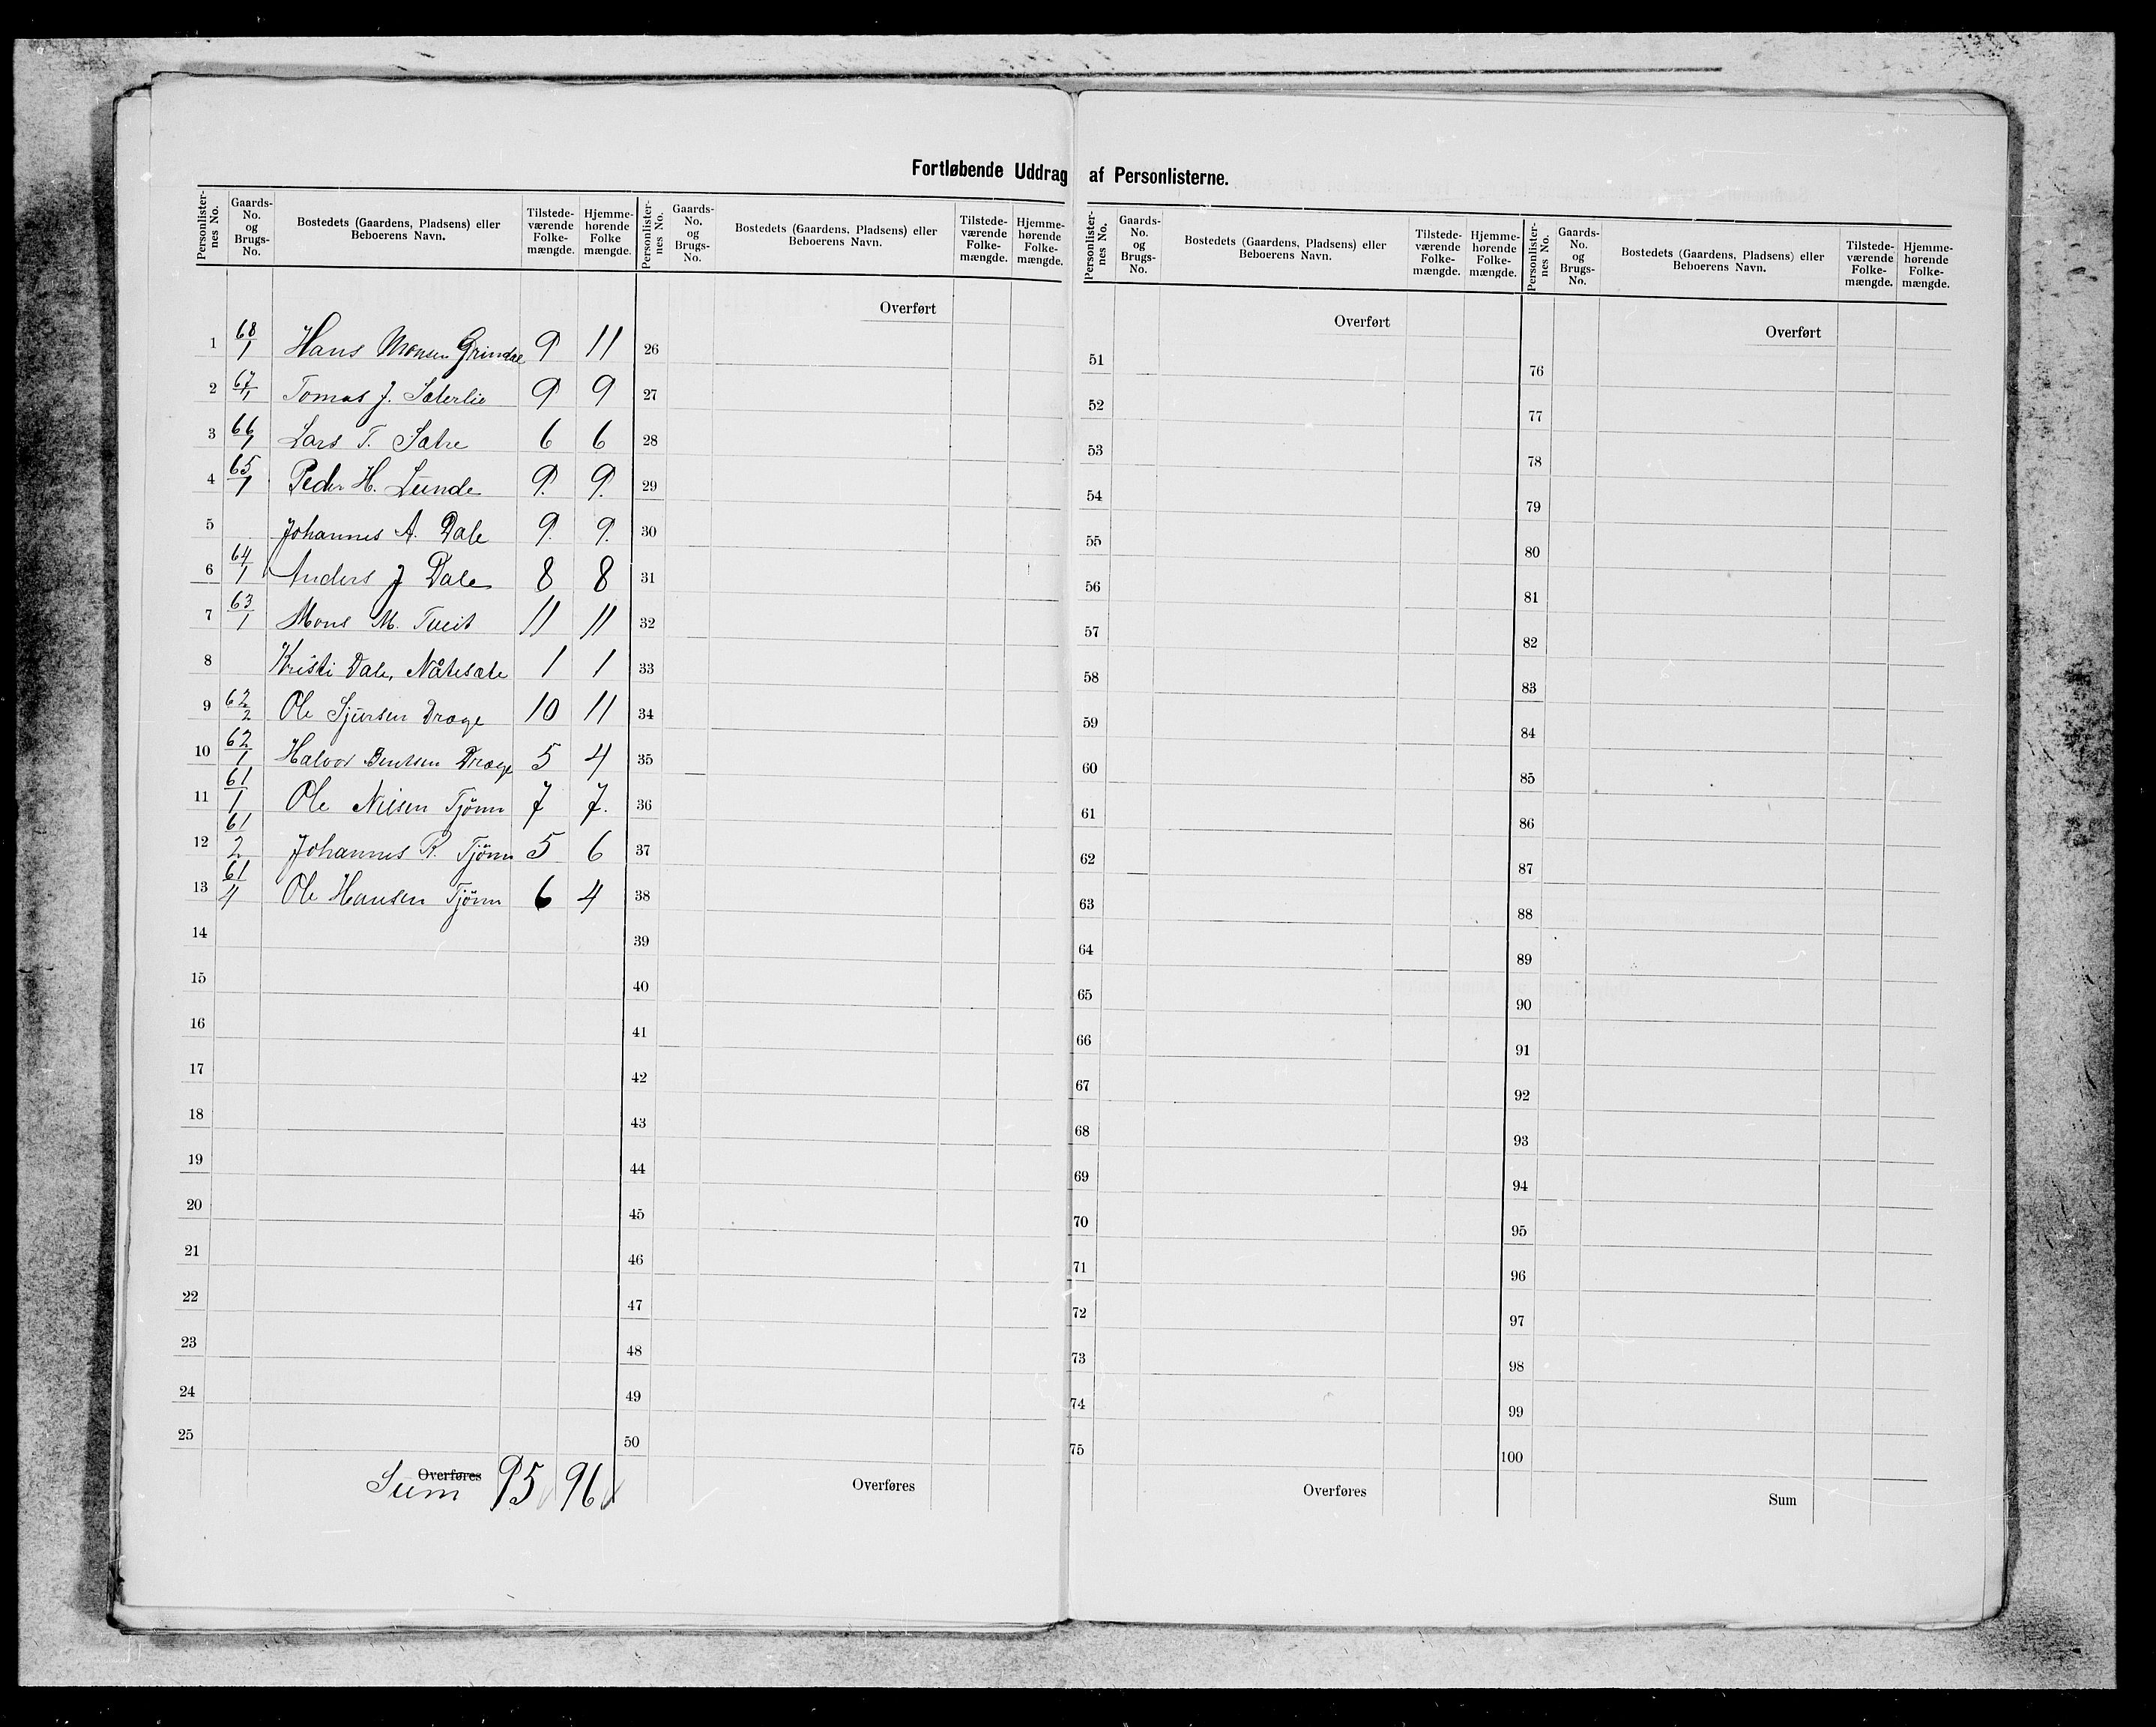 Fortløbende Uddrag af Personlisterne.
Personlister-nes No. Gaards-No. og Brugs-No. Bostedets (Gaardens, Pladsens) eller Beboerens Navn. Tilstede-værende Folke-mængde. Hjemme-hørende Folke mængde.
Personlister-nes No. Gaards-No. og Brugs-No. Bostedets (Gaardens, Pladsens) eller Beboerens Navn. Tilstede-værende Folke-mængde. Hjemme-hørende Folke-mængde.
Personlister-nes No. Gaards-No. og Brugs-No. Bostedets (Gaardens, Pladsens) eller Beboerens Navn. Tilstede-værende Folke-mængde. Hjemme-hørende Folke-mængde.
Personlister-nes No. Gaards-No. og Brugs-No. Bostedets (Gaardens, Pladsens) eller Beboerens Navn. Tilstede-værende Folke-mængde. Hjemme-hørende Folke-mængde.
1 68/1 Hans Monsen Grindae 9 11
2 67/1 Tomas J. Säterlie 9 9
3 66/1 Lars T. Sætre 6 6
4 65/1 Peder H. Lunde 9. 9.
5 Johannes A. Dale 9. 9.
6 64/1 Anders J Dale 8 8
7 63/1 Mons M. Tveit 11 11
8 Kristi Dale, Nåtesæle 1 1
9 62/2 Ole Sjursen Drage 10 11
10 62/1 Halvor Bentsen Drage 5 4
11 61/1 Ole Nilsen Tjönn 7 7.
12 61/2 Johannes R. Tjönn 5 6
13 61/4 Ole Hansen Tjönn 6 4
14
15
16
17
18
19
20
21
22
23
24
25
Overføres
Sum 95 96
Overført
26
27
28
29
30
31
32
33
34
35
36
37
38
39
40
41
42
43
44
45
46
47
48
49
50
Overføres
Overført
51
52
53
54
55
56
57
58
59
60
61
62
63
64
65
66
67
68
69
70
71
72
73
74
75
Overføres
Overført
76
77
78
79
80
81
82
83
84
85
86
87
88
89
90
91
92
93
94
95
96
97
98
99
100
Sum